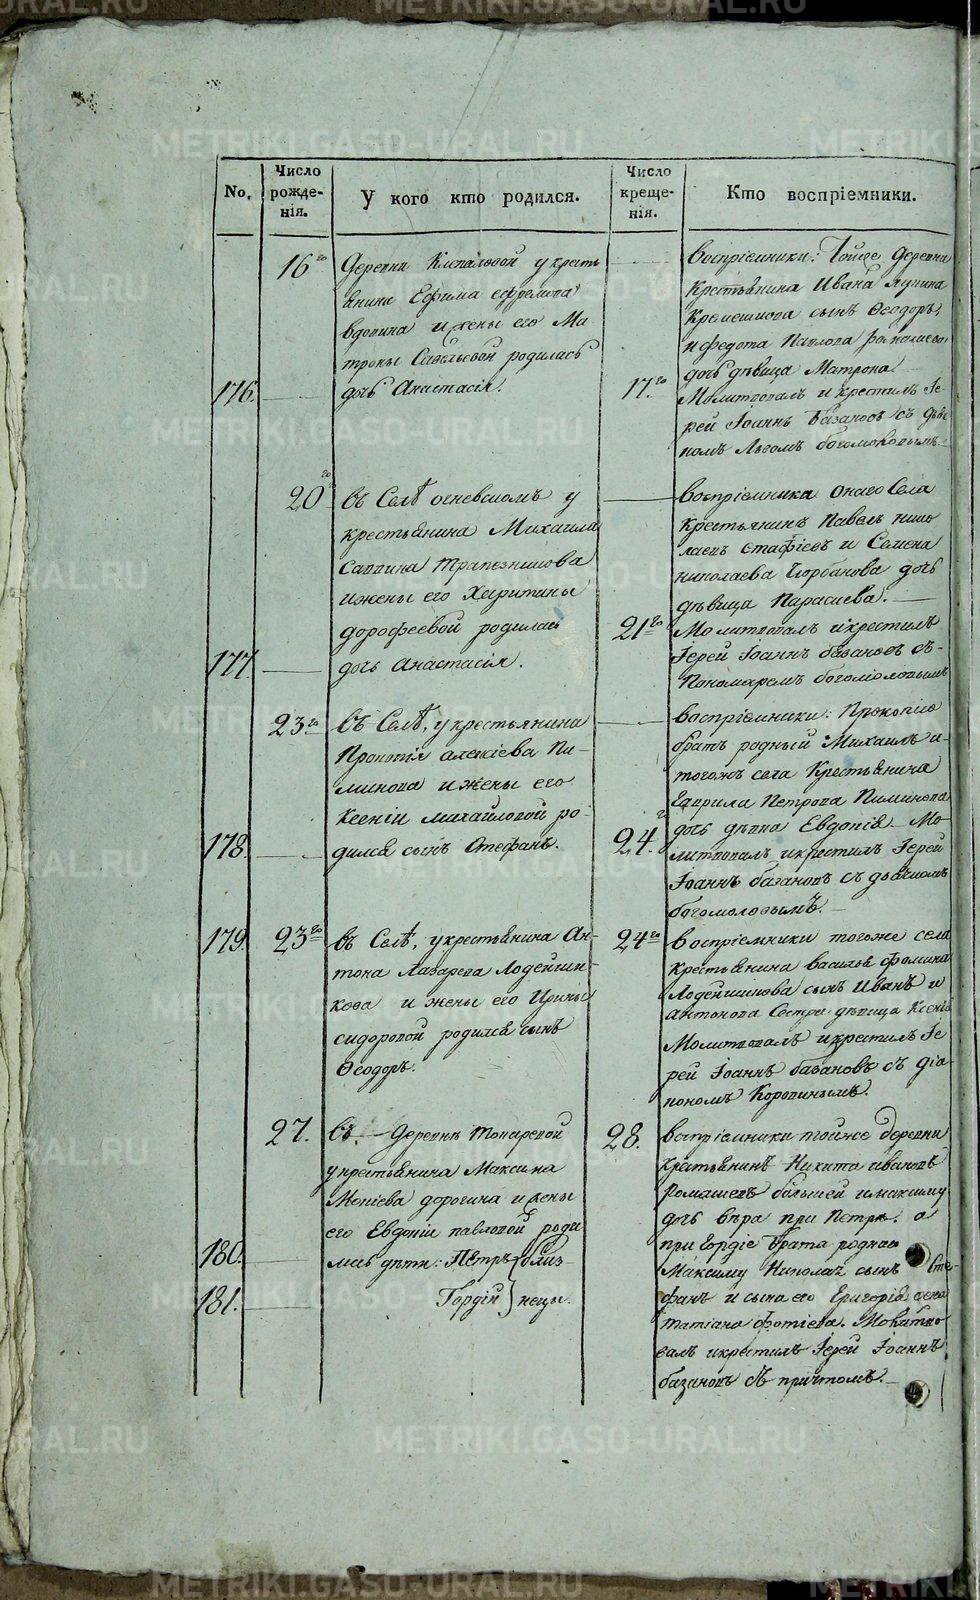 METRIKI.GASO-URAL.RU
No.
Число рожде-нія.
У кого кто родился.
Число креще-нія.
Кто воспріемники.
176.
16го
Деревни у кресть
янина Ефима Ефремова
вдовина и жены его Ма
троны Савельевой родилась
дочь Анастасія.
17го
воспріемники: Тойже деревни
крестьянина Ивана
сынъ Ѳеодоръ,
и Федота Павлова
дочь дѣвица Матрона
Молитвовалъ и крестилъ Іе
рей Іоаннъ Базановъ съ дьяч
комъ Львомъ богомоловымъ.
177.
20го
въ Селѣ огневскомъ у
крестьянина Михаила
Саввина Трапезникова
и жены его Харитины
дорофеевой родилась
дочь Анастасія.
21го
воспріемника онаго Села
крестьянинъ Павелъ нико
лаевъ и Семена
николаева дочь
дѣвица Параскева.
Молитвовалъ и крестилъ
Іерей Іоаннъ базановъ съ
Пономаремъ богомоловымъ
178.
23го
въ Селѣ, у крестьянина
Прокопія алексіева Пи-
минова и жены его
Ксеніи михайловой ро-
дился сынъ Стефанъ.
24.
воспріемники: Прокопію
братъ родный Михаилъ и
тогожъ села Крестьянина
Гаврила Петрова Пиминова
дочь дѣвка Евдокія Мо
литвовалъ и крестилъ Іерей
Іоаннъ базановъ съ дьячкомъ
богомоловымъ.
179.
23го
въ Селѣ, у крестьянина Ан-
тона Лазарева Лодейщи-
кова и жены его Ирины
сидоровой родился сынъ
Ѳеодоръ.
24го
воспріемники тогоже села
крестьянина василья фомина
Лодейщикова сынъ Иванъ и
антонова Сестра дѣвица Ксенія
Молитвовалъ и крестилъ Іе
рей Іоаннъ базановъ съ діа-
кономъ Коровинымъ.
180.
181.
27.
въ. Деревнѣ Токаревой
у крестьянина Максима
дорогина и жены
его Евдокіи павловой роди
лись дѣти: Петръ близ
Гордій нецы.
28.
воспріемники тойже деревни
крестьянинъ Никита ивановъ
большей и максиму
дочь вѣра при Петрѣ. а
при Гордіе брата роднаго
Максиму Николая сынъ Сте
фанъ и сына его Григорія жена
татіана фотіева. Молитво
валъ и крестилъ Іерей Іоаннъ
базановъ съ причтомъ.